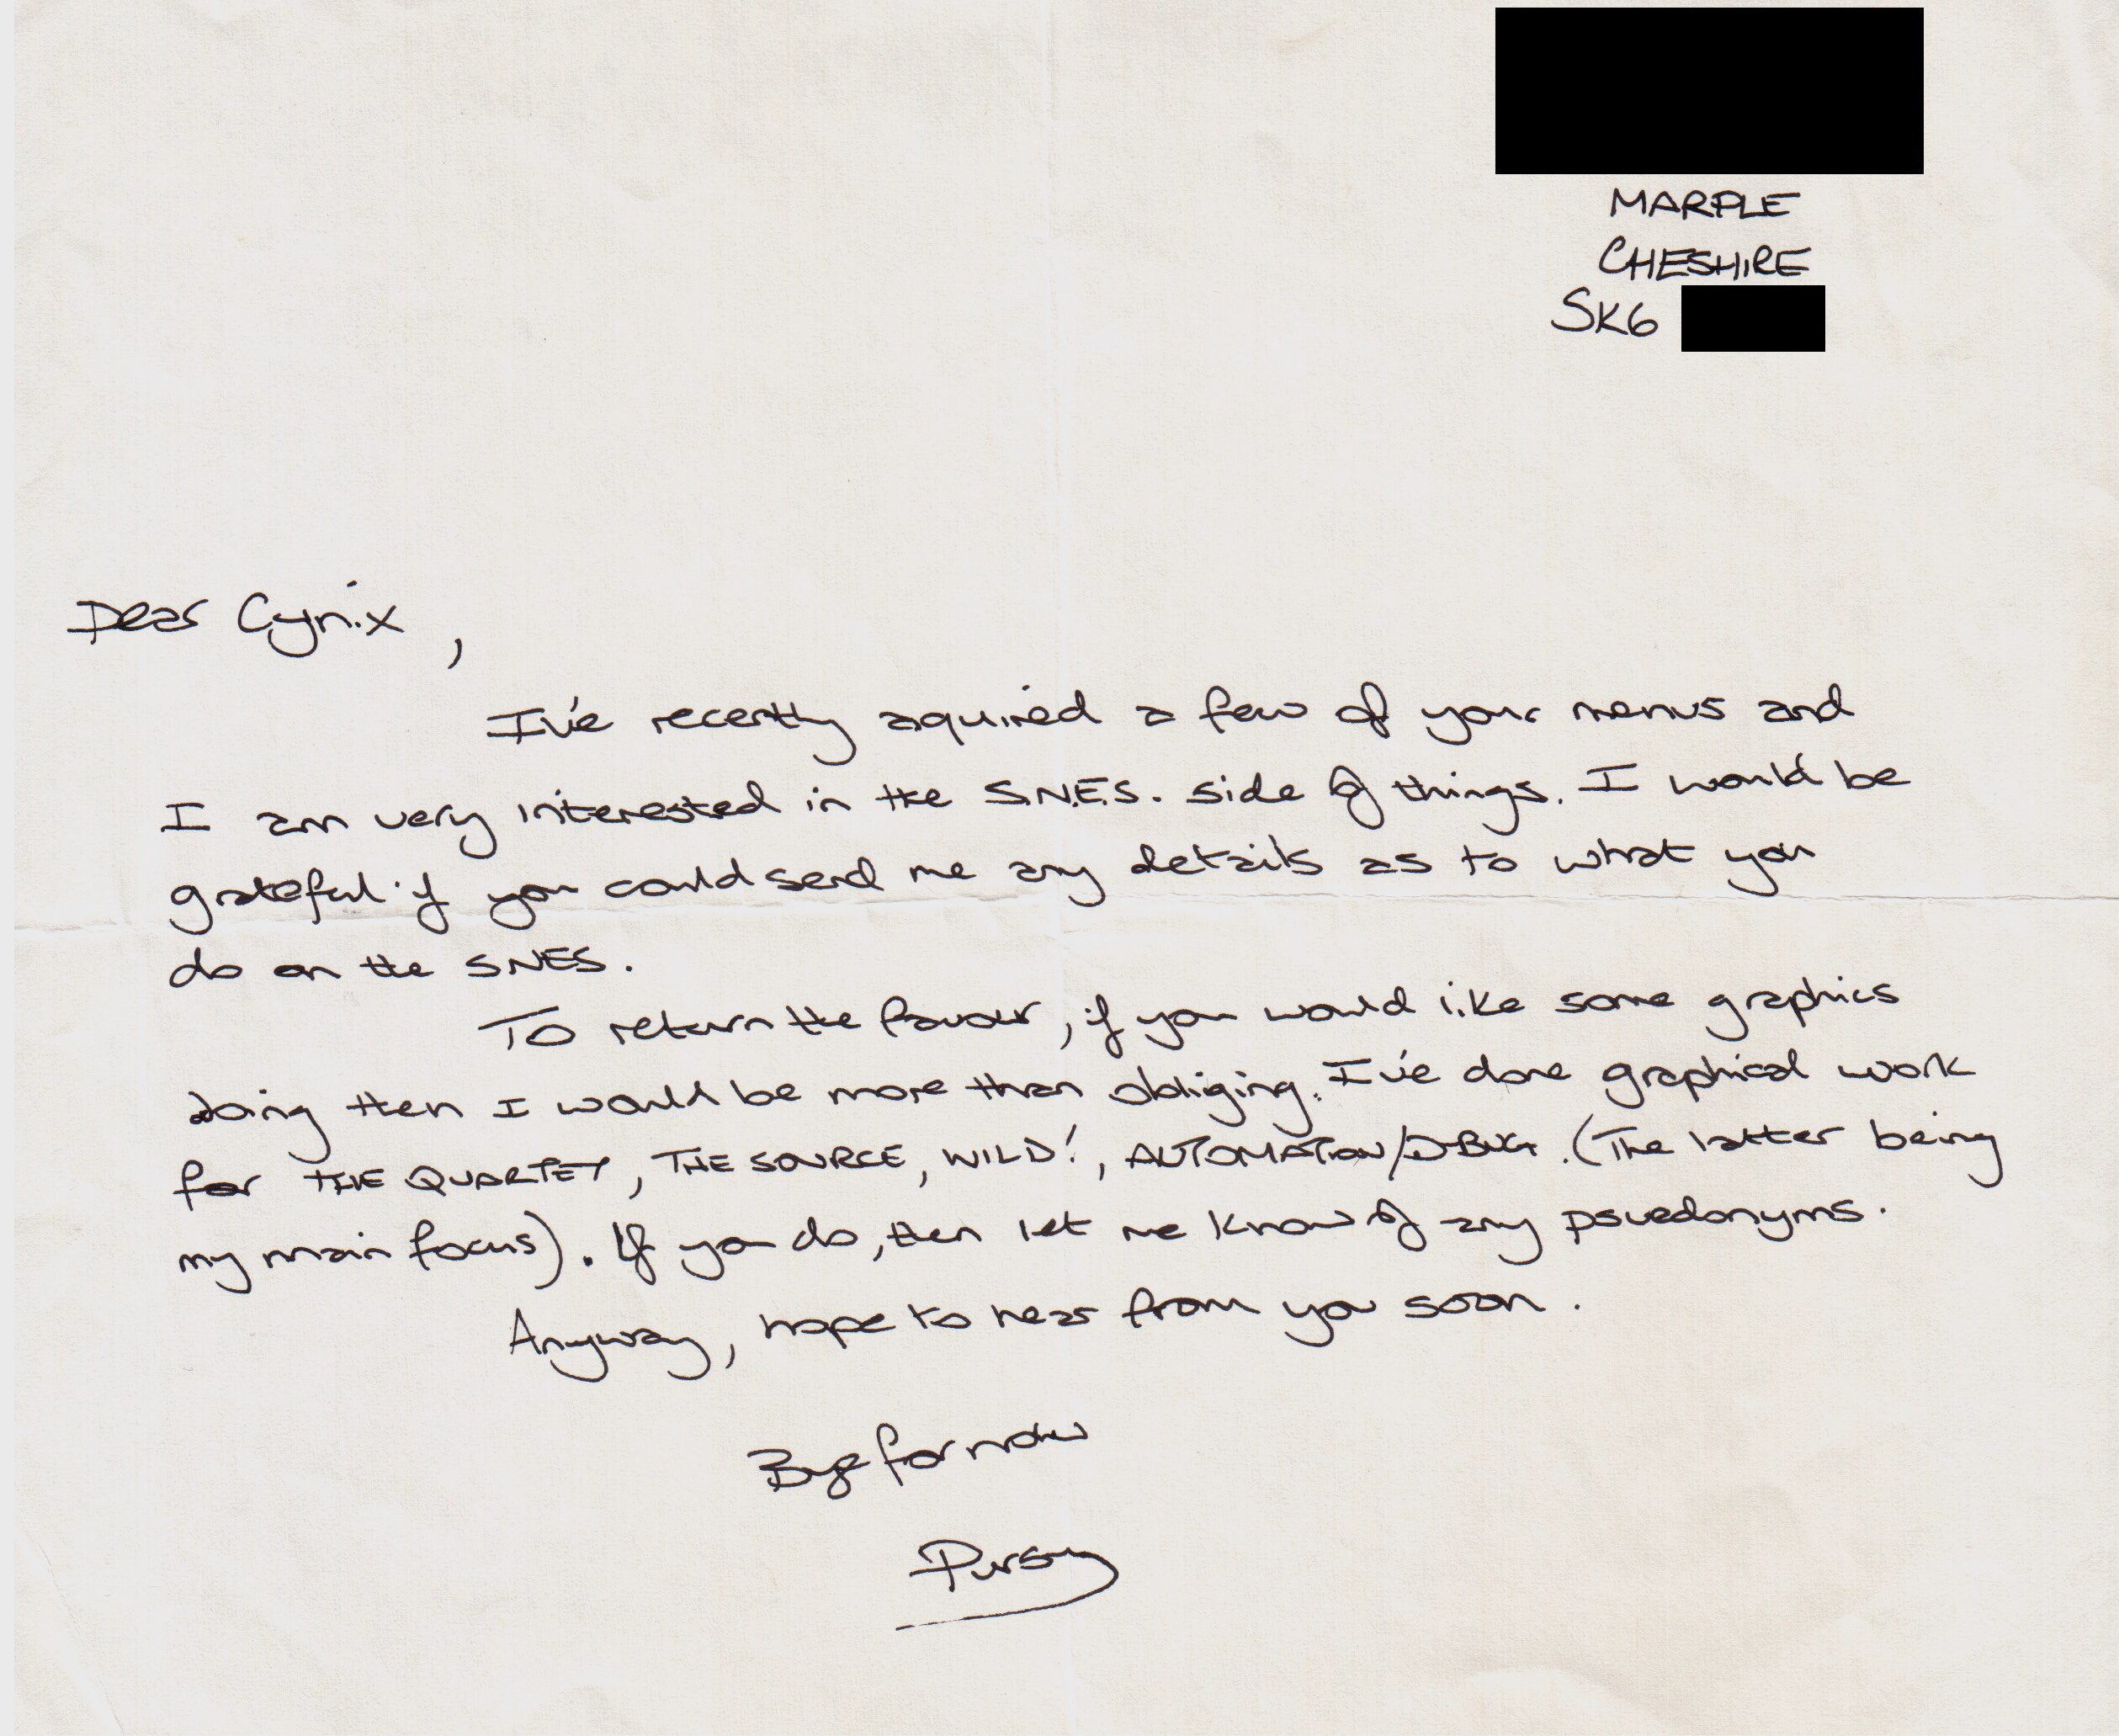 MARPLE
CHESHIRE
SK6
Dear Cynix,
I've recently aquired a few of your menus and
I am very interested in the S.N.E.S. side of things. I would be
grateful if you could send me any details as to what you
do on the SNES.
To return the favour, if you would like some graphics
doing then I would be more than obliging. I've done graphical work
for THE QUARTET, THE SOURCE, WILD!, AUTOMATION/D-BUG. (The latter being
my main focus). If you do, then let me know of any psuedonyms.
Anyway, hope to hear from you soon.
Bye for now
Pursy